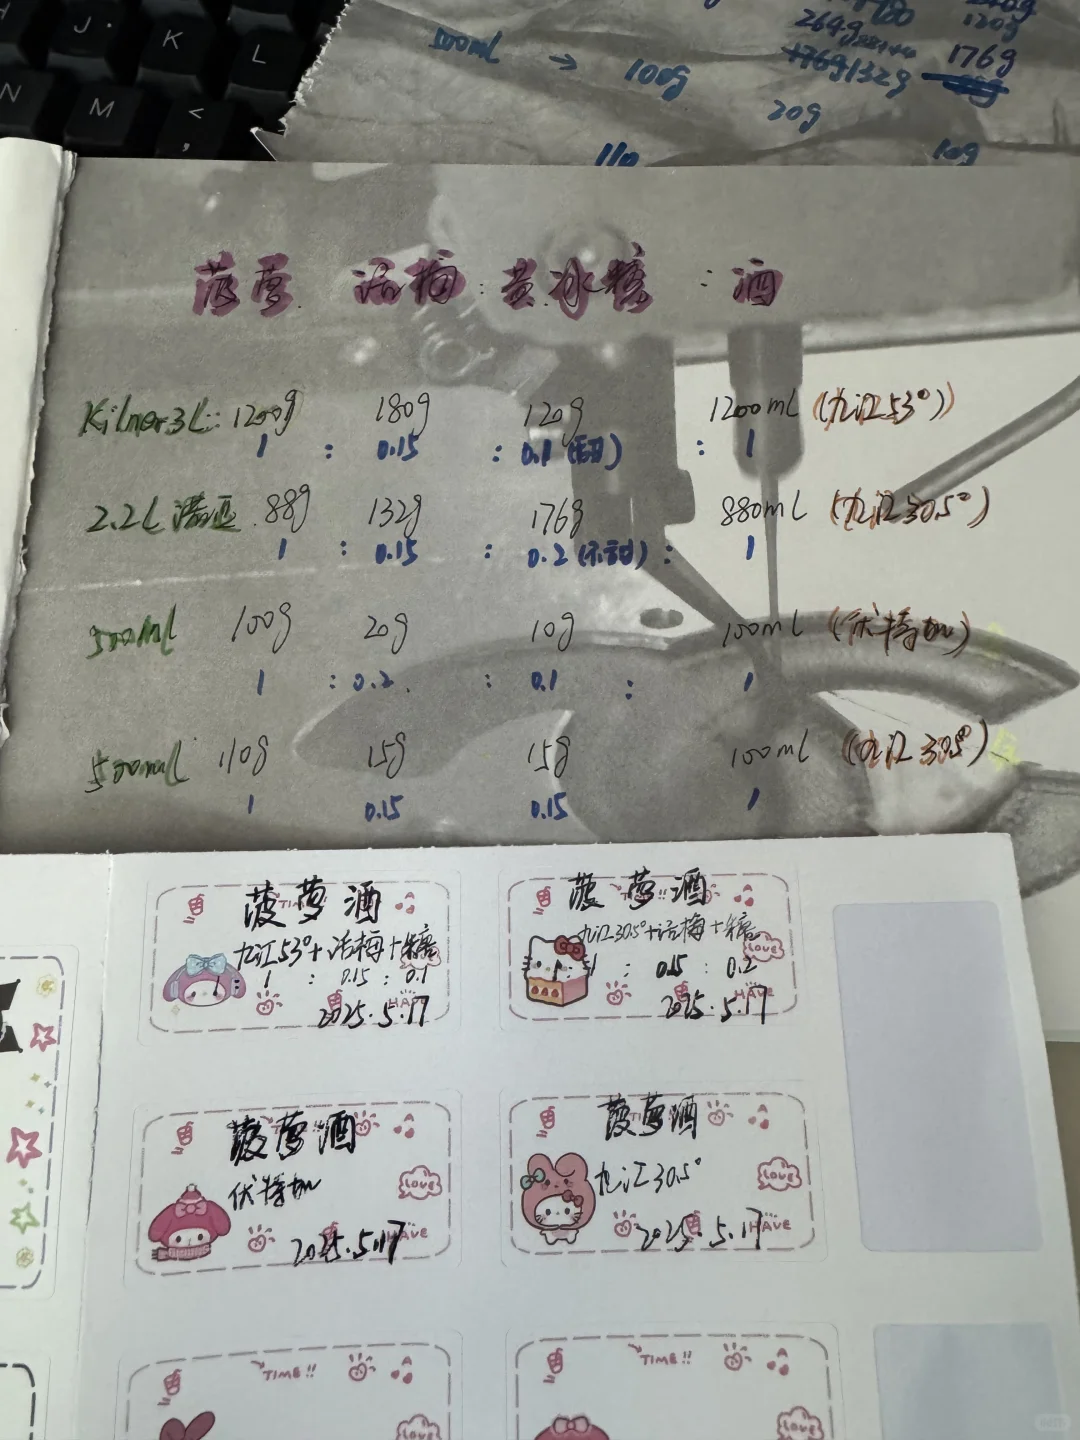 J K L
N M <
,
264g 100 120g
500ml → 100g 132g 176g
20g
110 10g
菠萝 : 话梅 : 黄冰糖 : 酒
Kilner3L: 1200g 180g 120g 1200ml (九江53°)
1 : 0.15 : 0.1 : 1
2.2L 88g 132g 176g 880ml (九江30.5°)
1 : 0.15 : 0.2 : 1
500ml 100g 20g 10g 100ml (伏特加)
1 : 0.2 : 0.1 : 1
500ml 110g 15g 15g 100ml (九江30.5°)
1 0.15 0.15 1
菠萝酒
九江53°+话梅+糖
1 : 0.15 : 0.1
2025.5.17
菠萝酒
九江30.5°+话梅+糖
LOVE
1 : 0.15 : 0.2
HAVE
2025.5.17
菠萝酒
伏特加
LOVE
HAVE
2025.5.17
菠萝酒
九江30.5°
LOVE
HAVE
2025.5.17
TIME!!
LOVE
TIME!!
LOVE